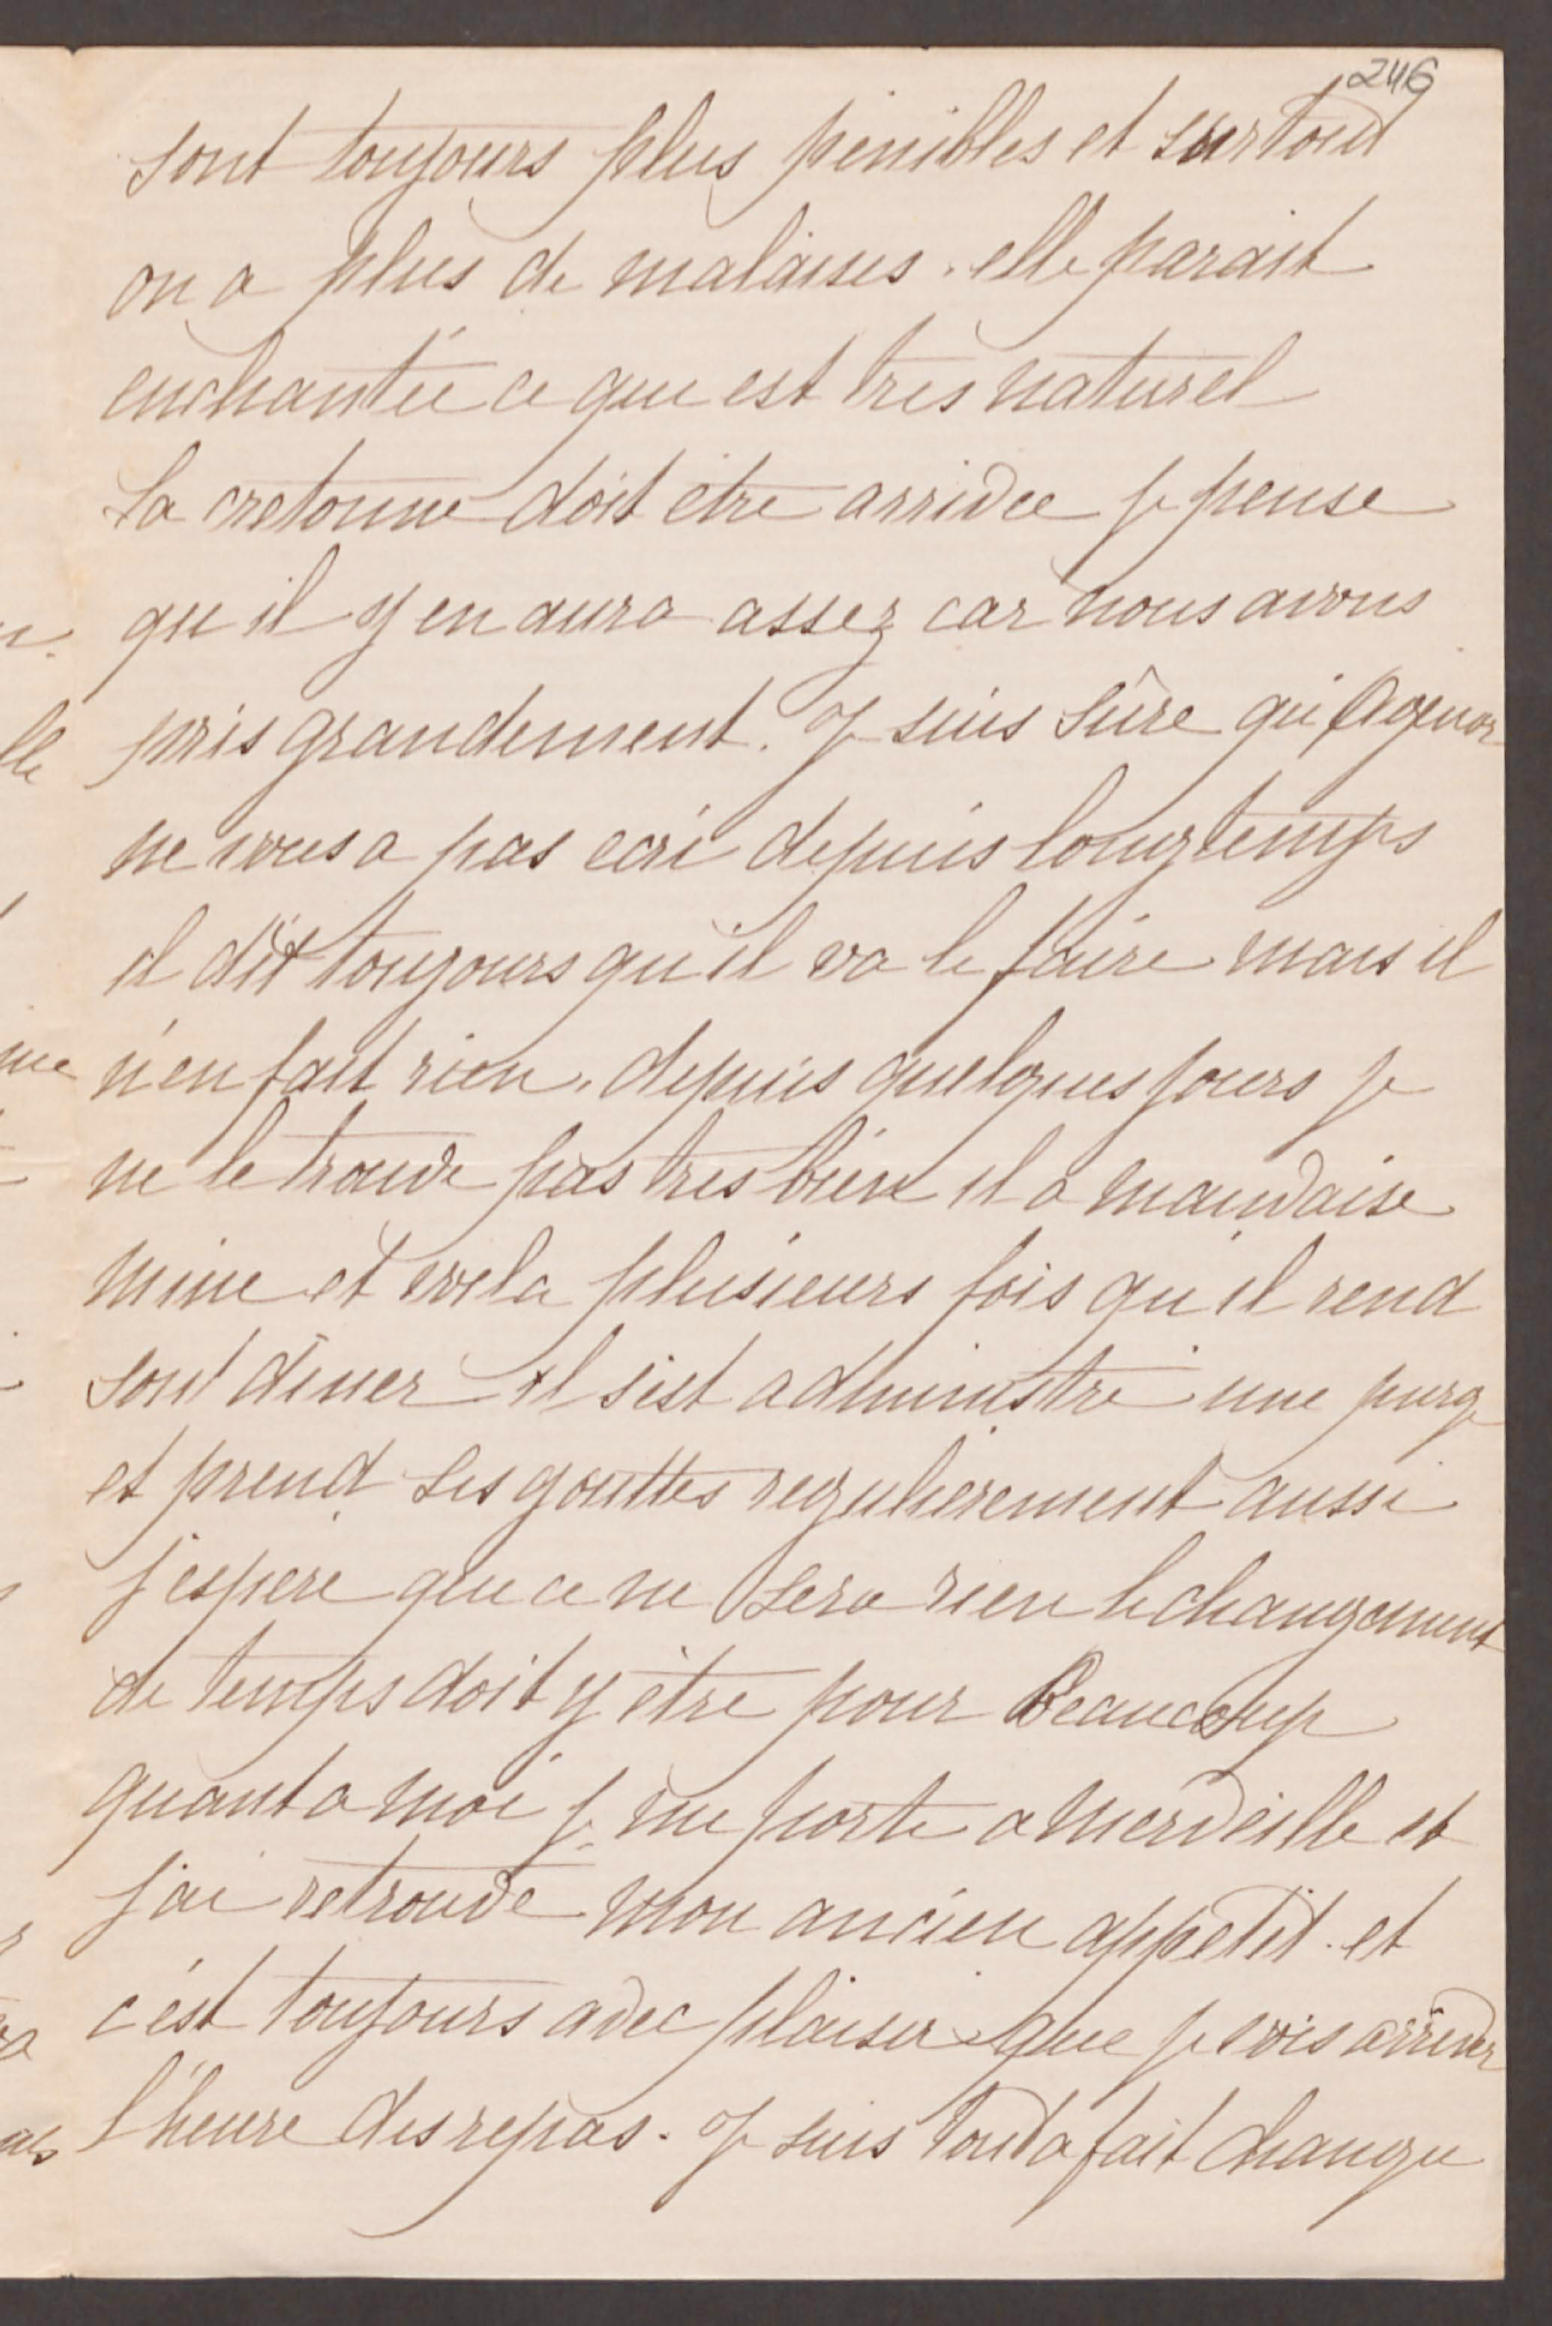 246
sont toujours plus penibles et surtout
on a plus de malaises. elle parait
enchantée ce que est très naturel
La cretonne doit être arrivée je pense
qu'il y en aura assez car nous avons
pris grandement. Je suis sûre qu'Agenor
ne vous a pas ecri depuis longtemps
il dit toujours qu'il va le faire mais il
n'en fait rien. depuis quelques jours je
ne le trouve pas tres bien il a mauvaise
mine et voila plusieurs fois qu'il rend
son diner il s'est administré une purge
et prend ses gouttes regulierement aussi
j'espere que ce ne sera rien le changement
de temps doit y être pour Beaucoup
quant a moi je me porte a merveille et
j'ai retrouvé mon ancien appetit. et
c'est toujours avec plaisir que je vois arriver
l'heure des repas. Je suis tout a fait change